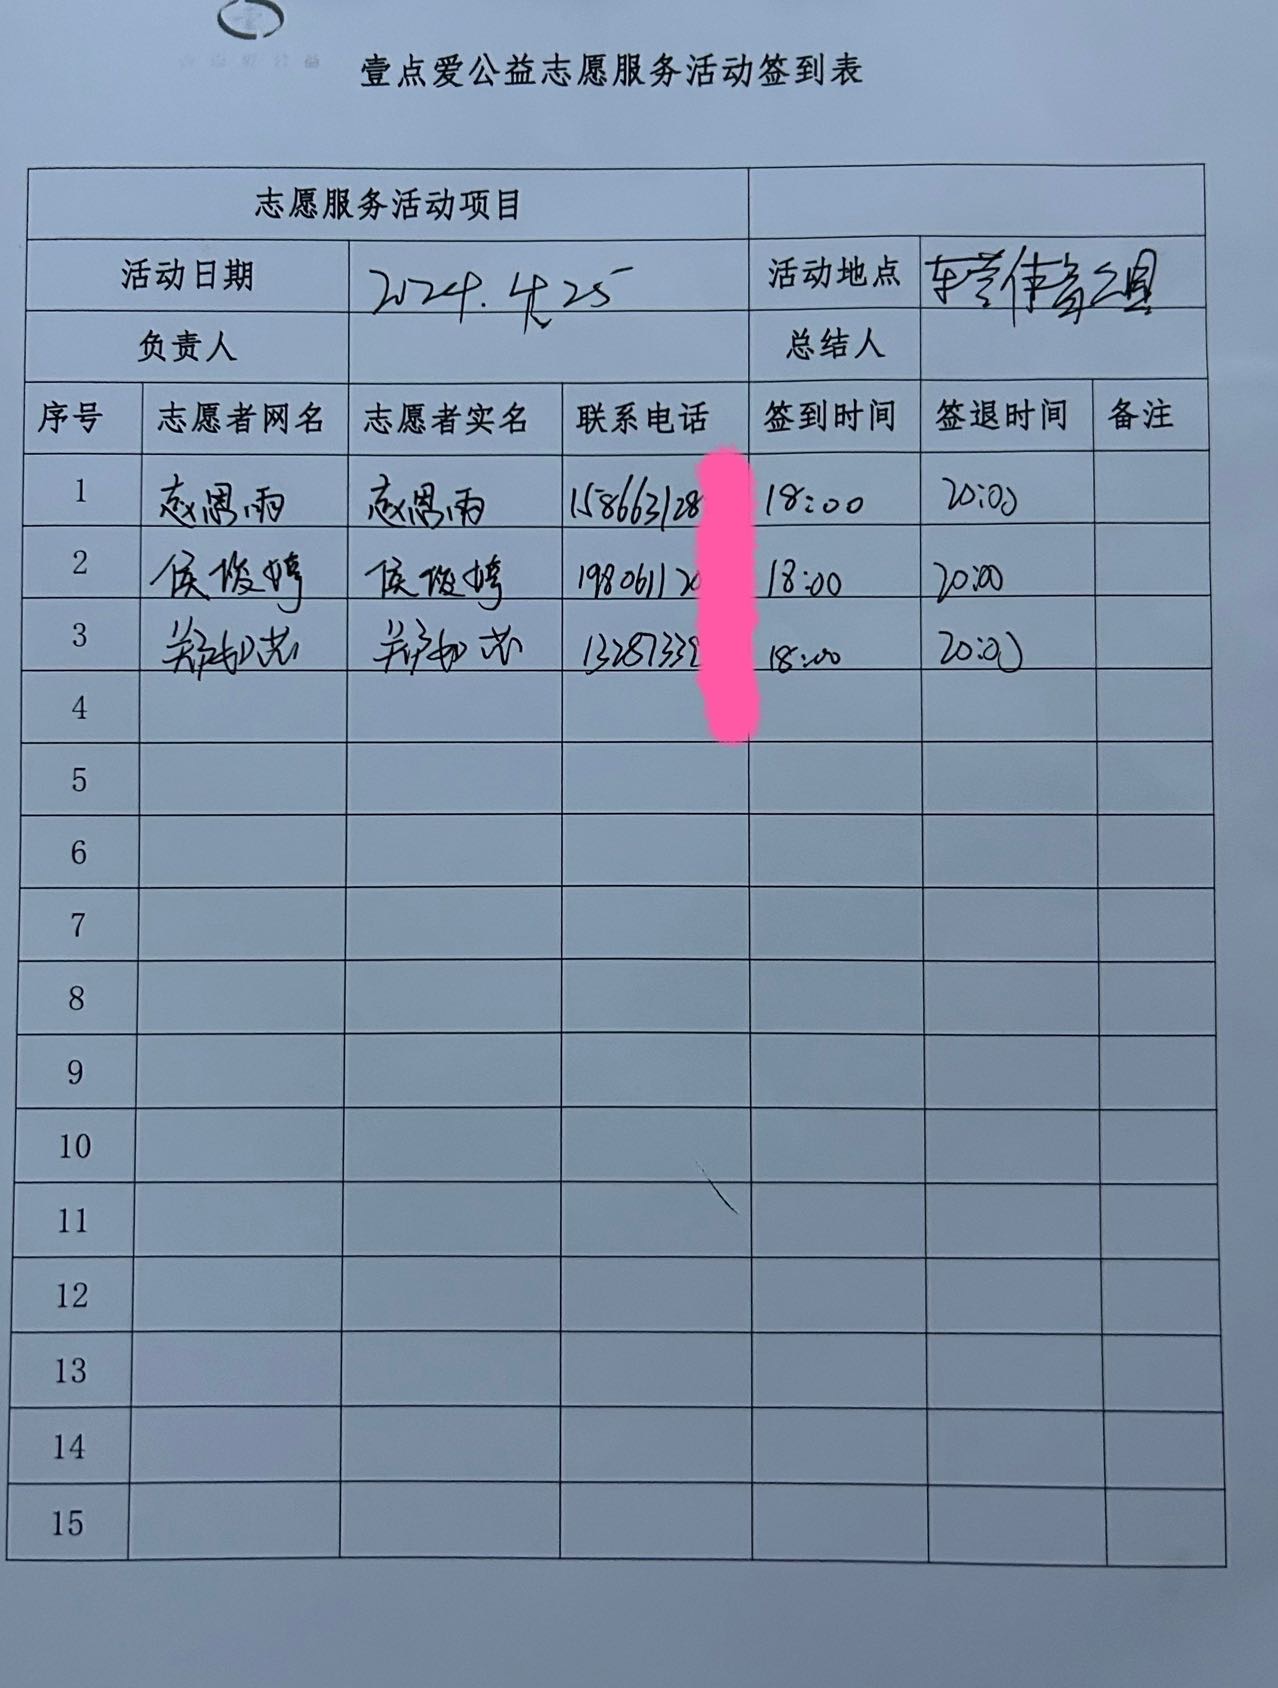 壹点爱公益志愿服务活动签到表
志愿服务活动项目
活动日期 2024.4.25 活动地点 东营体育公园
负责人 总结人
序号 志愿者网名 志愿者实名 联系电话 签到时间 签退时间 备注
1 赵恩雨 赵恩雨 158663128 18:00 20:00
2 侯俊婷 侯俊婷 198061120 18:00 20:00
3 郑如芯 郑如芯 13287339 18:00 20:00
4
5
6
7
8
9
10
11
12
13
14
15